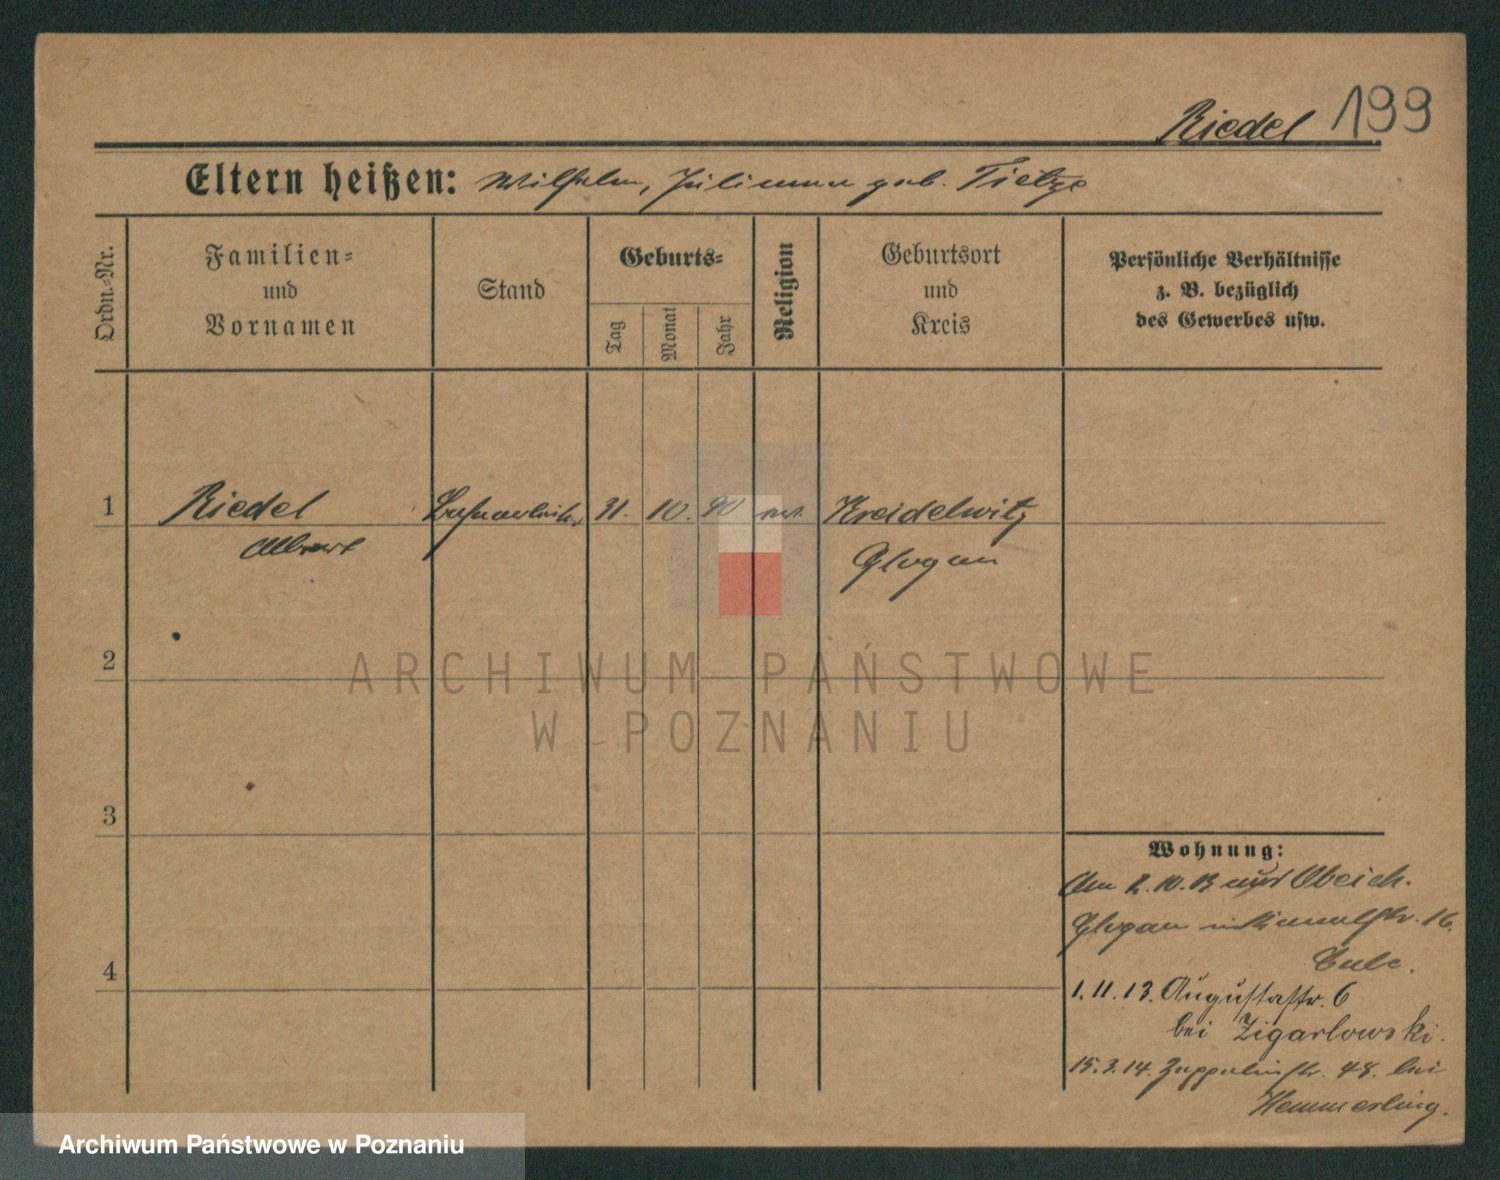 Riedel 199
Eltern heißen: Wilhelm, Julianna geb. Tietze
Ordn.-Nr.
Familien-
und
Vornamen
Stand
Geburts-
Tag
Monat
Jahr
Religion
Geburtsort
und
Kreis
Persönliche Verhältnisse
z. B. bezüglich
des Gewerbes usw.
1 Riedel 31. 10. 90 Kreidelwitz
Albert Glogau
2
ARCHIWUM PAŃSTWOWE
W POZNANIU
3
Wohnung:
Am 2.10.13
Glogau 16.
4
1.11.13. Augustastr. 6
bei Zigarlowski.
15.3.14. Zeppelinstr. 48. bei
Hemmerling.
Archiwum Państwowe w Poznaniu